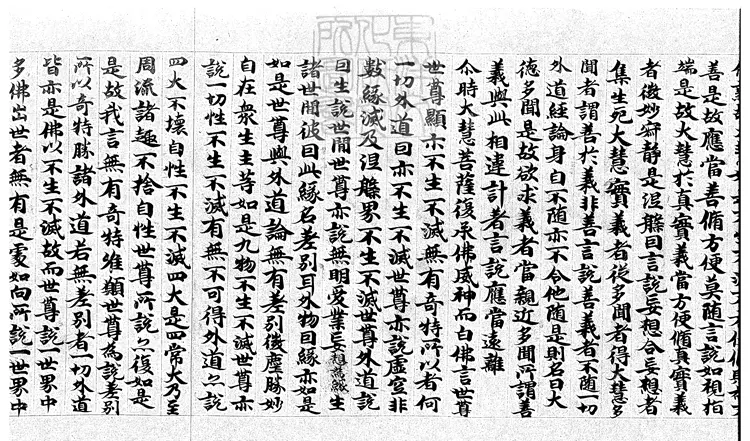 善是故應當善脩方便莫随言說如視指
端是故大慧於真實義當方便脩真實義
者微妙寂静是涅槃因言說妄想合妄想者
集生死大慧實義者從多聞者得大慧多
聞者謂善於義非善言說善義者不随一切
外道經論身自不随亦不令他随是則名曰大
德多聞是故欲求義者當親近多聞所謂善
義與此相違計著言說應當遠離
尒時大慧菩薩復承佛威神而白佛言世尊
世尊顯亦不生不滅無有奇特所以者何
一切外道因亦不生不滅世尊亦說虛空非
數緣滅及涅槃界不生不滅世尊外道說
因生說世間世尊亦說無明愛業妄想為緣生
諸世間彼因此緣名差別耳外物因緣亦如是
如是世尊與外道論無有差別微塵勝妙
自在衆生主等如是九物不生不滅世尊亦
說一切性不生不滅有無不可得外道亦說
四大不壞自性不生不滅四大是四常大乃至
周流諸趣不捨自性世尊所說亦復如是
是故我言無有奇特唯願世尊為說差別
所以奇特勝諸外道若無差別者一切外道
皆亦是佛以不生不滅故而世尊說一世界中
多佛出世者無有是處如向所說一世界中